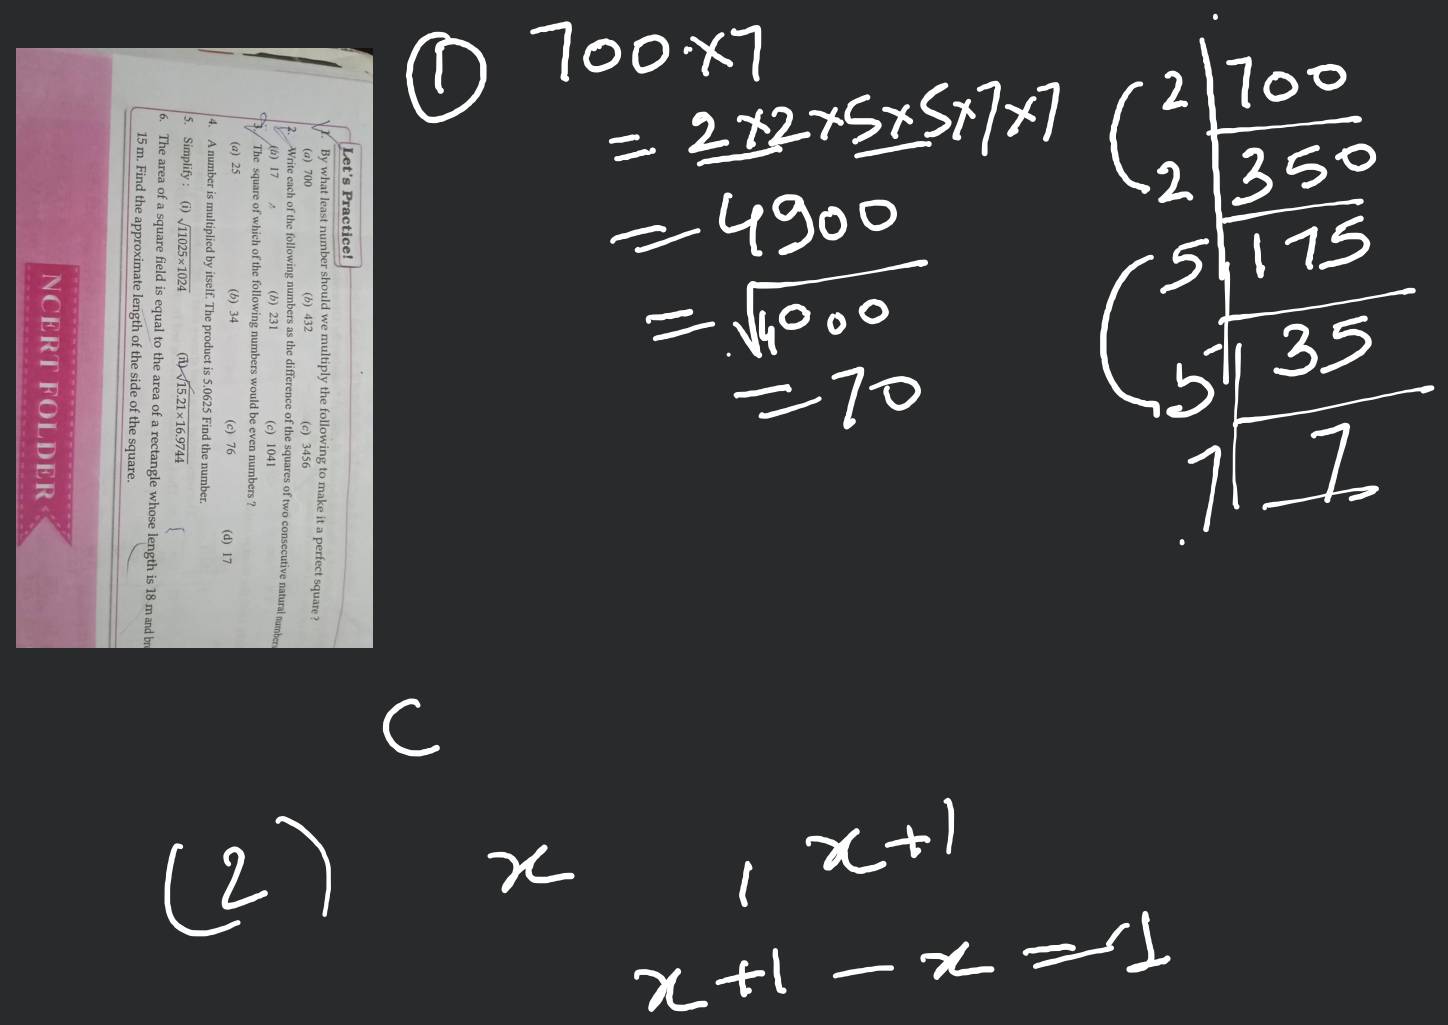 Let's Practice!
1. By what least number should we multiply the following to make it a perfect square?
(a) 700 (b) 432 (c) 3456
2. Write each of the following numbers as the difference of the squares of two consecutive natural numbers
(a) 17 (b) 231 (c) 1041
3. The square of which of the following numbers would be even numbers?
(a) 25 (b) 34 (c) 76 (d) 17
4. A number is multiplied by itself. The product is 5.0625 Find the number.
5. Simplify: (i) √11025×1024 (ii) √15.21×16.9744
6. The area of a square field is equal to the area of a rectangle whose length is 18 m and
15 m. Find the approximate length of the side of the square.
NCERT FOLDER
① 700×7
= 2×2×5×5×7×7
= 4900
= √4000
= 70
2 700
2 350
5 175
5 35
7 7
C
(2) x , x+1
x+1 − x = 1